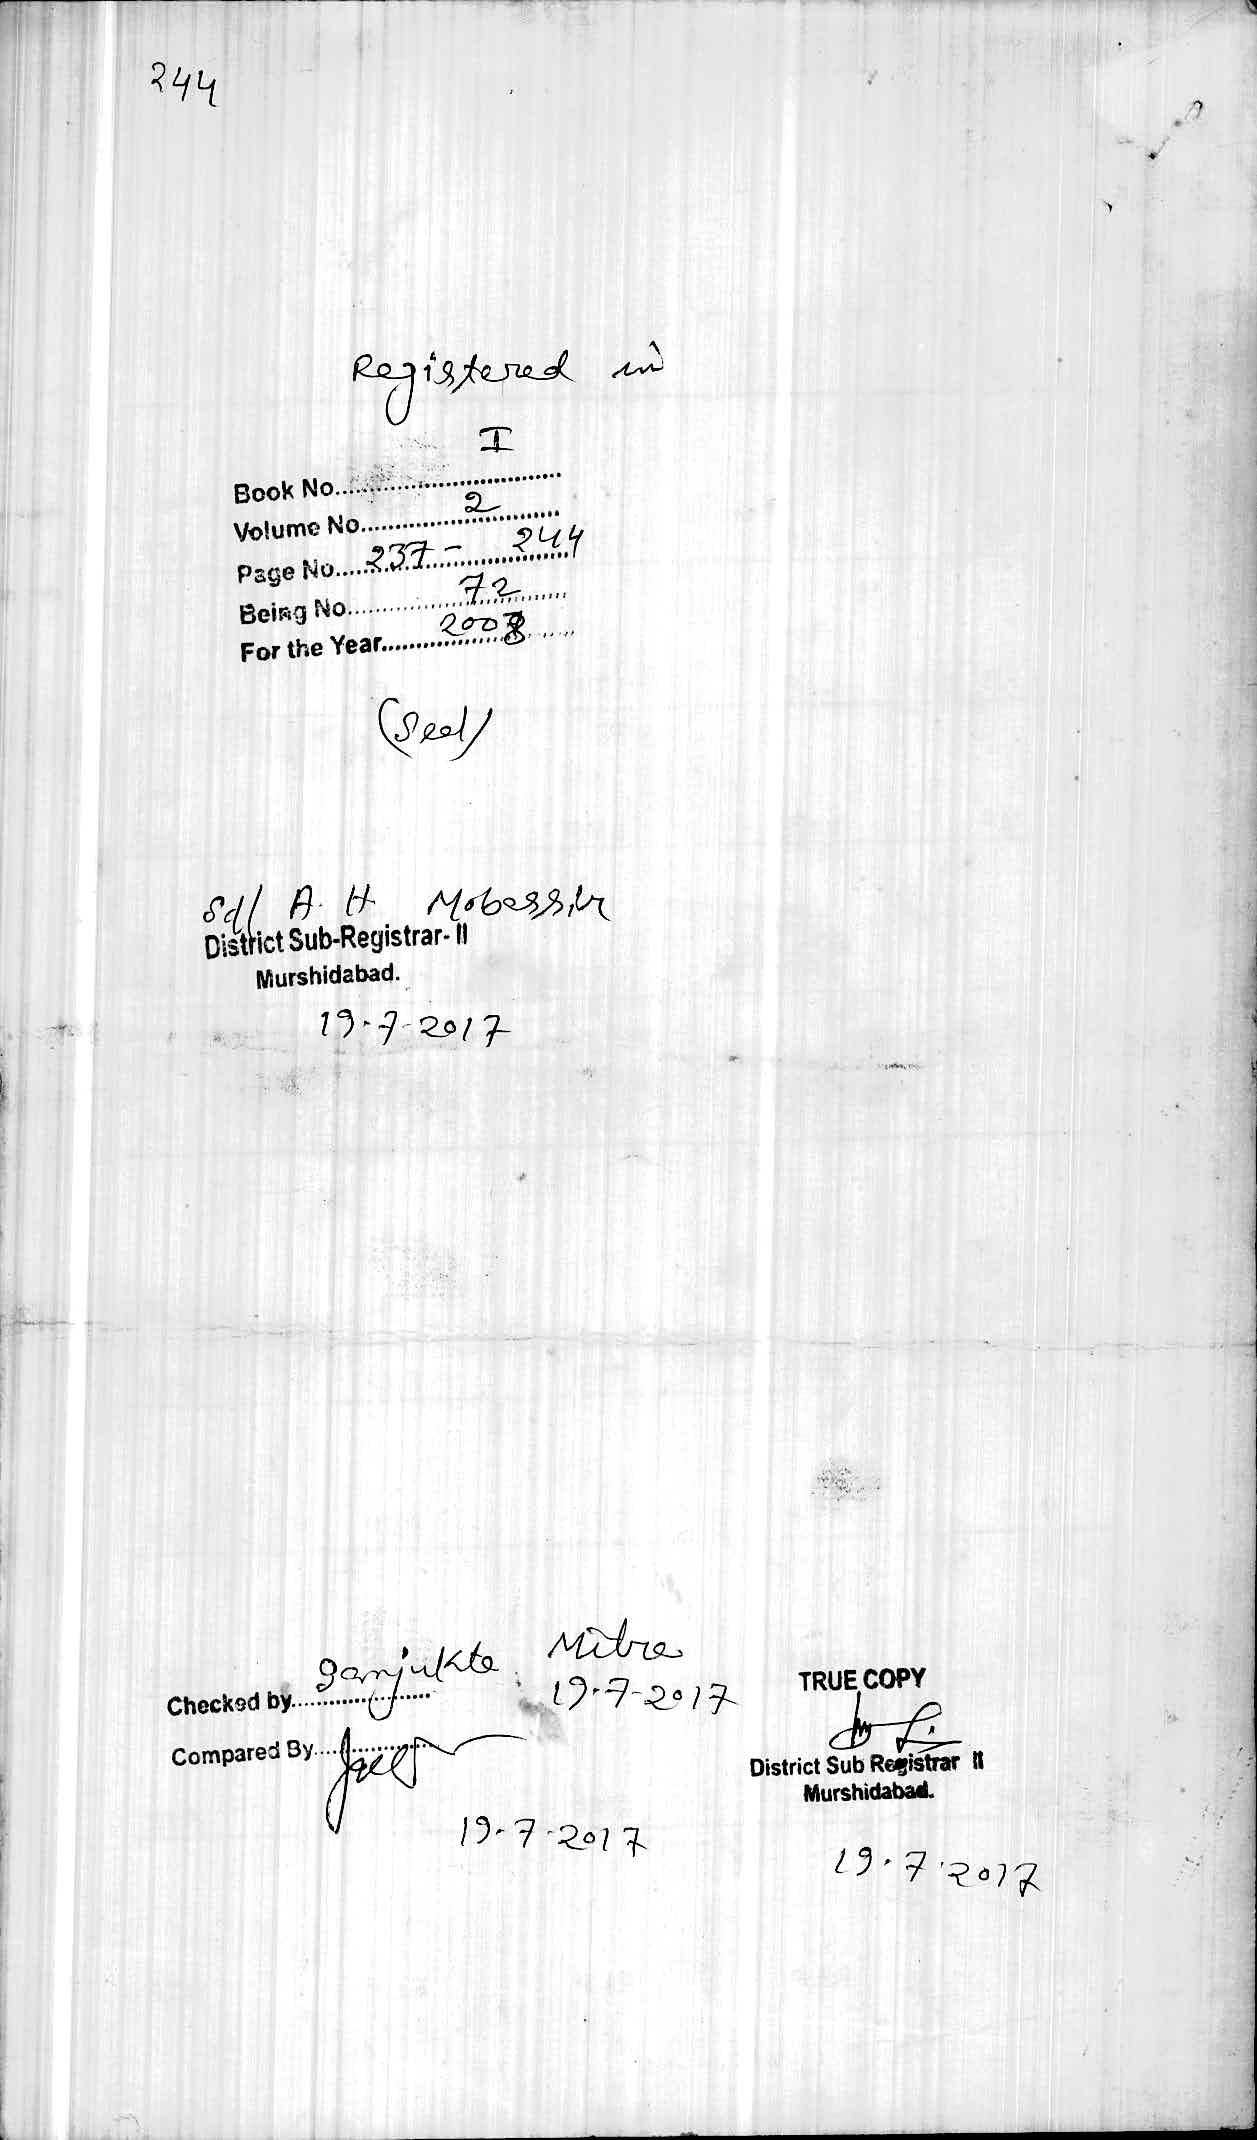 244
Registered in
I
Book No...........................
Volume No.......2.............
Page No....237 - 244
Being No.......72.............
For the Year.......2008.......
(Seal)
Sd/ A. H. Mobassir
District Sub-Registrar- II
Murshidabad.
19-7-2017
Checked by Sanjukta Mitra
19-7-2017
Compared By
19-7-2017
TRUE COPY
District Sub Registrar II
Murshidabad.
19-7-2017